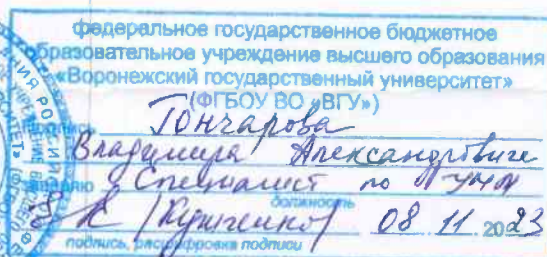 федеральное государственное бюджетное
образовательное учреждение высшего образования
«Воронежский государственный университет»
(ФГБОУ ВО «ВГУ»)
Гончарова
Владимира Александровича
Специалист по
должность
08 11 2023
подпись, расшифровка подписи